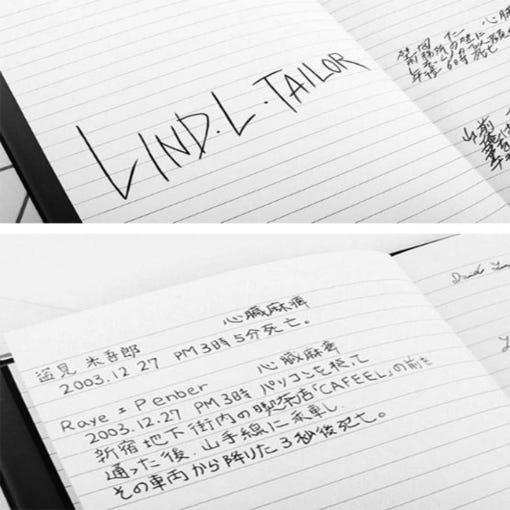 LIND.L.TAILOR
心臓
午後6時死亡
心臓麻痺
盗見 米吾郎
2003.12.27 PM3時5分死亡。
Raye=Penber 心臓麻痺
2003.12.27 PM3時 パソコンを捨て
新宿地下街内の喫茶店「CAFEEL」の前を
通った後、山手線に乗車し、
その車両から降りた3秒後死亡。